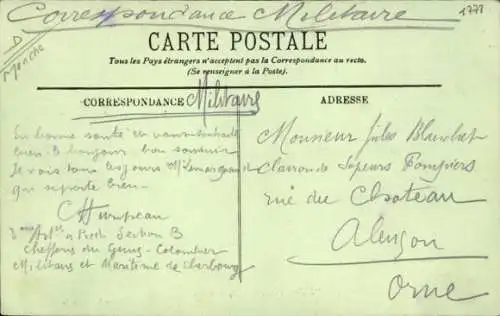 Correspondance Militaire
1777
Manche
CARTE POSTALE
Tous les Pays étrangers n'acceptent pas la Correspondance au recto.
(Se renseigner à la Poste).
CORRESPONDANCE Militaire
ADRESSE
En bonne santé et
bien le bonjour bon souvenir
Je vois tous les jours
qui se porte bien
Section B
du Génie - Colombier
Militaire et Maritime de Cherbourg
Monsieur Jules
Clairon de Sapeurs Pompiers
rue du Chateau
Alençon
Orne